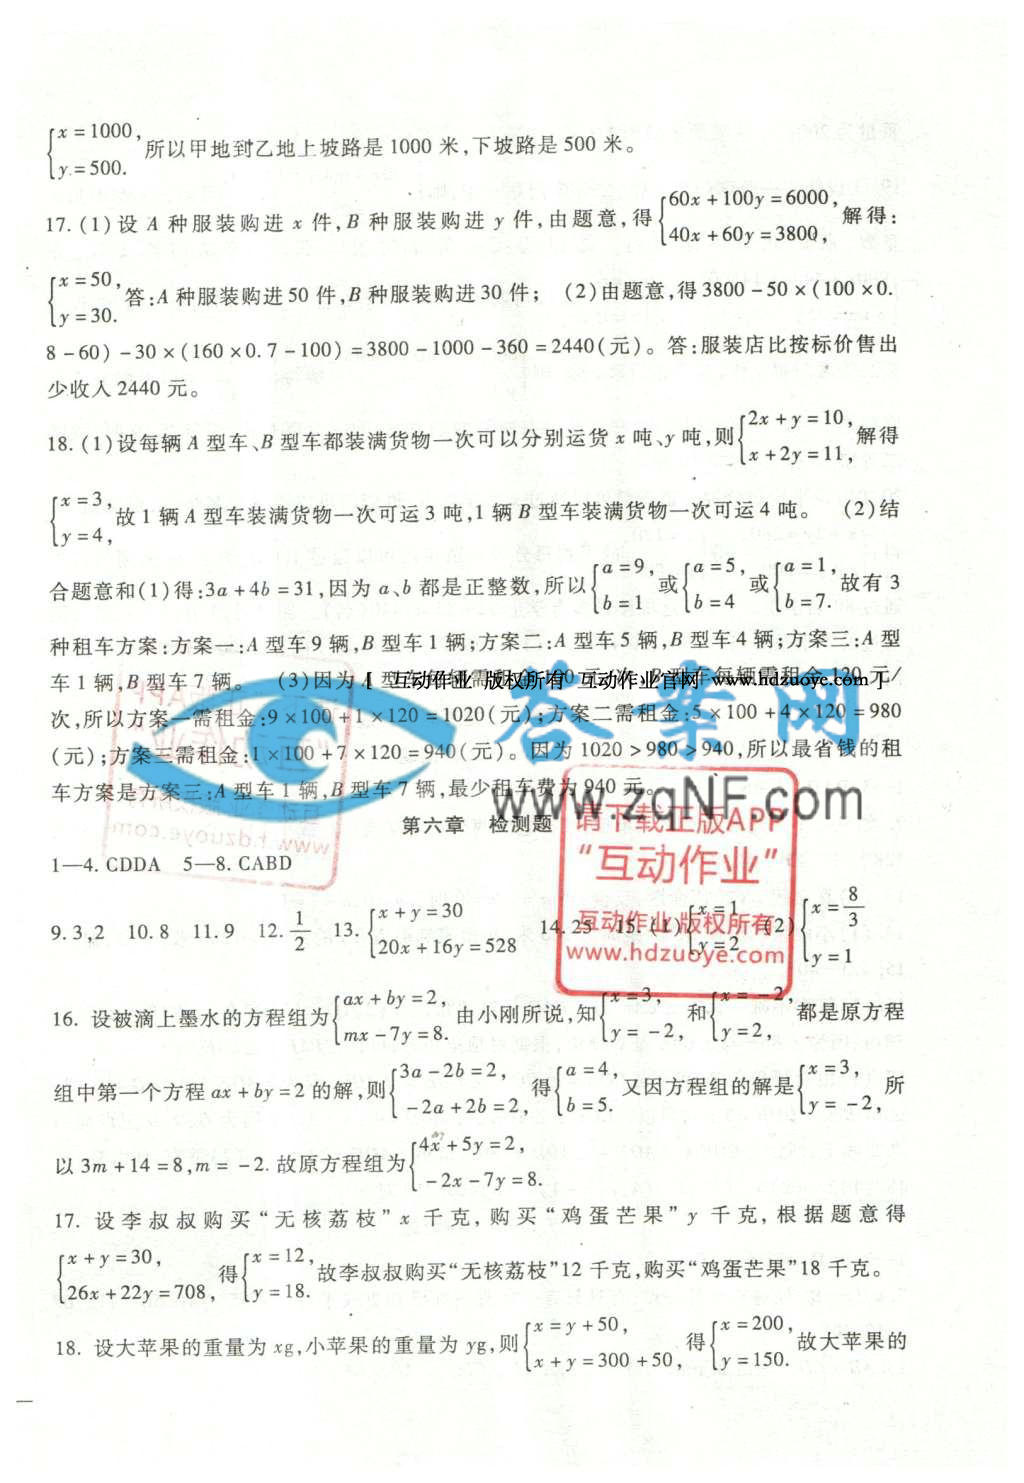 {x=1000, y=500. 所以甲地到乙地上坡路是1000米,下坡路是500米。
17.(1)设A种服装购进x件,B种服装购进y件,由题意,得{60x+100y=6000, 40x+60y=3800, 解得:
{x=50, y=30. 答:A种服装购进50件,B种服装购进30件; (2)由题意,得3800-50×(100×0.
8-60)-30×(160×0.7-100)=3800-1000-360=2440(元)。答:服装店比按标价售出
少收入2440元。
18.(1)设每辆A型车、B型车都装满货物一次可以分别运货x吨、y吨,则{2x+y=10, x+2y=11, 解得
{x=3, y=4, 故1辆A型车装满货物一次可运3吨,1辆B型车装满货物一次可运4吨。 (2)结
合题意和(1)得:3a+4b=31,因为a、b都是正整数,所以{a=9, b=1 或{a=5, b=4 或{a=1, b=7. 故有3
种租车方案:方案一:A型车9辆,B型车1辆;方案二:A型车5辆,B型车4辆;方案三:A型
车1辆,B型车7辆。 (3)因为A型车每辆需租金100元/次,B型车每辆需租金120元/
【 互动作业 版权所有 互动作业官网 www.hdzuoye.com 】
次,所以方案一需租金:9×100+1×120=1020(元);方案二需租金:5×100+4×120=980
(元);方案三需租金:1×100+7×120=940(元)。因为1020>980>940,所以最省钱的租
车方案是方案三:A型车1辆,B型车7辆,最少租车费为940元。
答案网
www.zqNF.com
第六章 检测题
请下载正版APP
“互动作业”
互动作业 版权所有
www.hdzuoye.com
1—4. CDDA 5—8. CABD
9.3,2 10.8 11.9 12.1/2 13.{x+y=30 20x+16y=528 14.25 15.(1){x=1 y=2 (2){x=8/3 y=1
16. 设被滴上墨水的方程组为{ax+by=2, mx-7y=8. 由小刚所说,知{x=3, y=-2, 和{x=-2, y=2, 都是原方程
组中第一个方程ax+by=2的解,则{3a-2b=2, -2a+2b=2, 得{a=4, b=5. 又因方程组的解是{x=3, y=-2, 所
以3m+14=8,m=-2.故原方程组为{4x+5y=2, -2x-7y=8.
17. 设李叔叔购买“无核荔枝”x千克,购买“鸡蛋芒果”y千克,根据题意得
{x+y=30, 26x+22y=708, 得{x=12, y=18. 故李叔叔购买“无核荔枝”12千克,购买“鸡蛋芒果”18千克。
18. 设大苹果的重量为xg,小苹果的重量为yg,则{x=y+50, x+y=300+50, 得{x=200, y=150. 故大苹果的